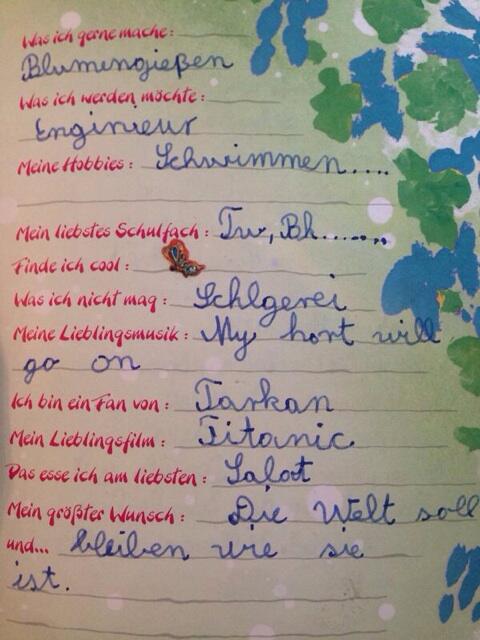 Was ich gerne mache:
Blumengießen
Was ich werden möchte:
Enginieur
Meine Hobbies: Schwimmen....
Mein liebstes Schulfach: Tw, Bk......,
Finde ich cool:
Was ich nicht mag: Schlgerei
Meine Lieblingsmusik: My hort will
go on
Ich bin ein Fan von: Tarkan
Mein Lieblingsfilm: Titanic
Das esse ich am liebsten: Salat
Mein größter Wunsch: Die Welt soll
und... bleiben wie sie
ist.